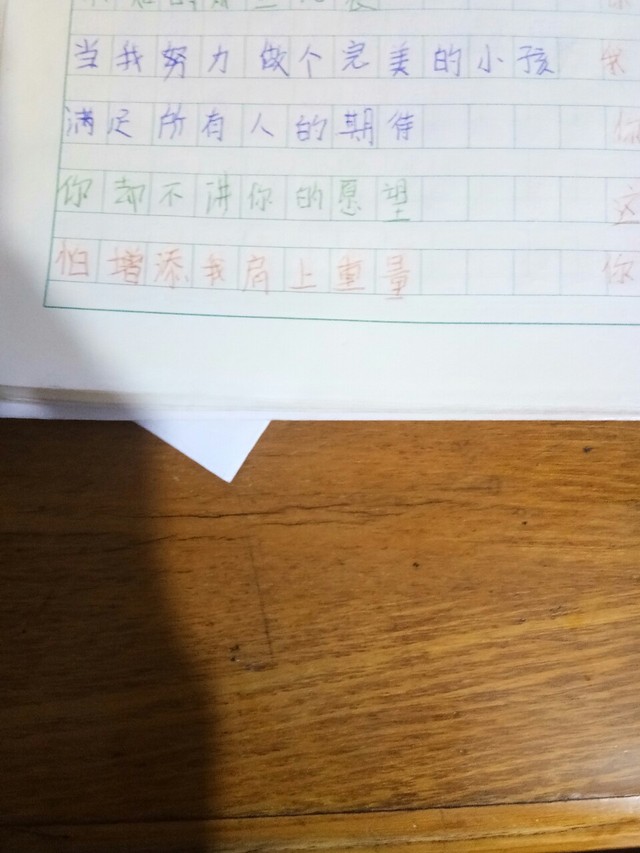 当我努力做个完美的小孩
满足所有人的期待
你却不讲你的愿望
怕增添我肩上重量
你
这
你